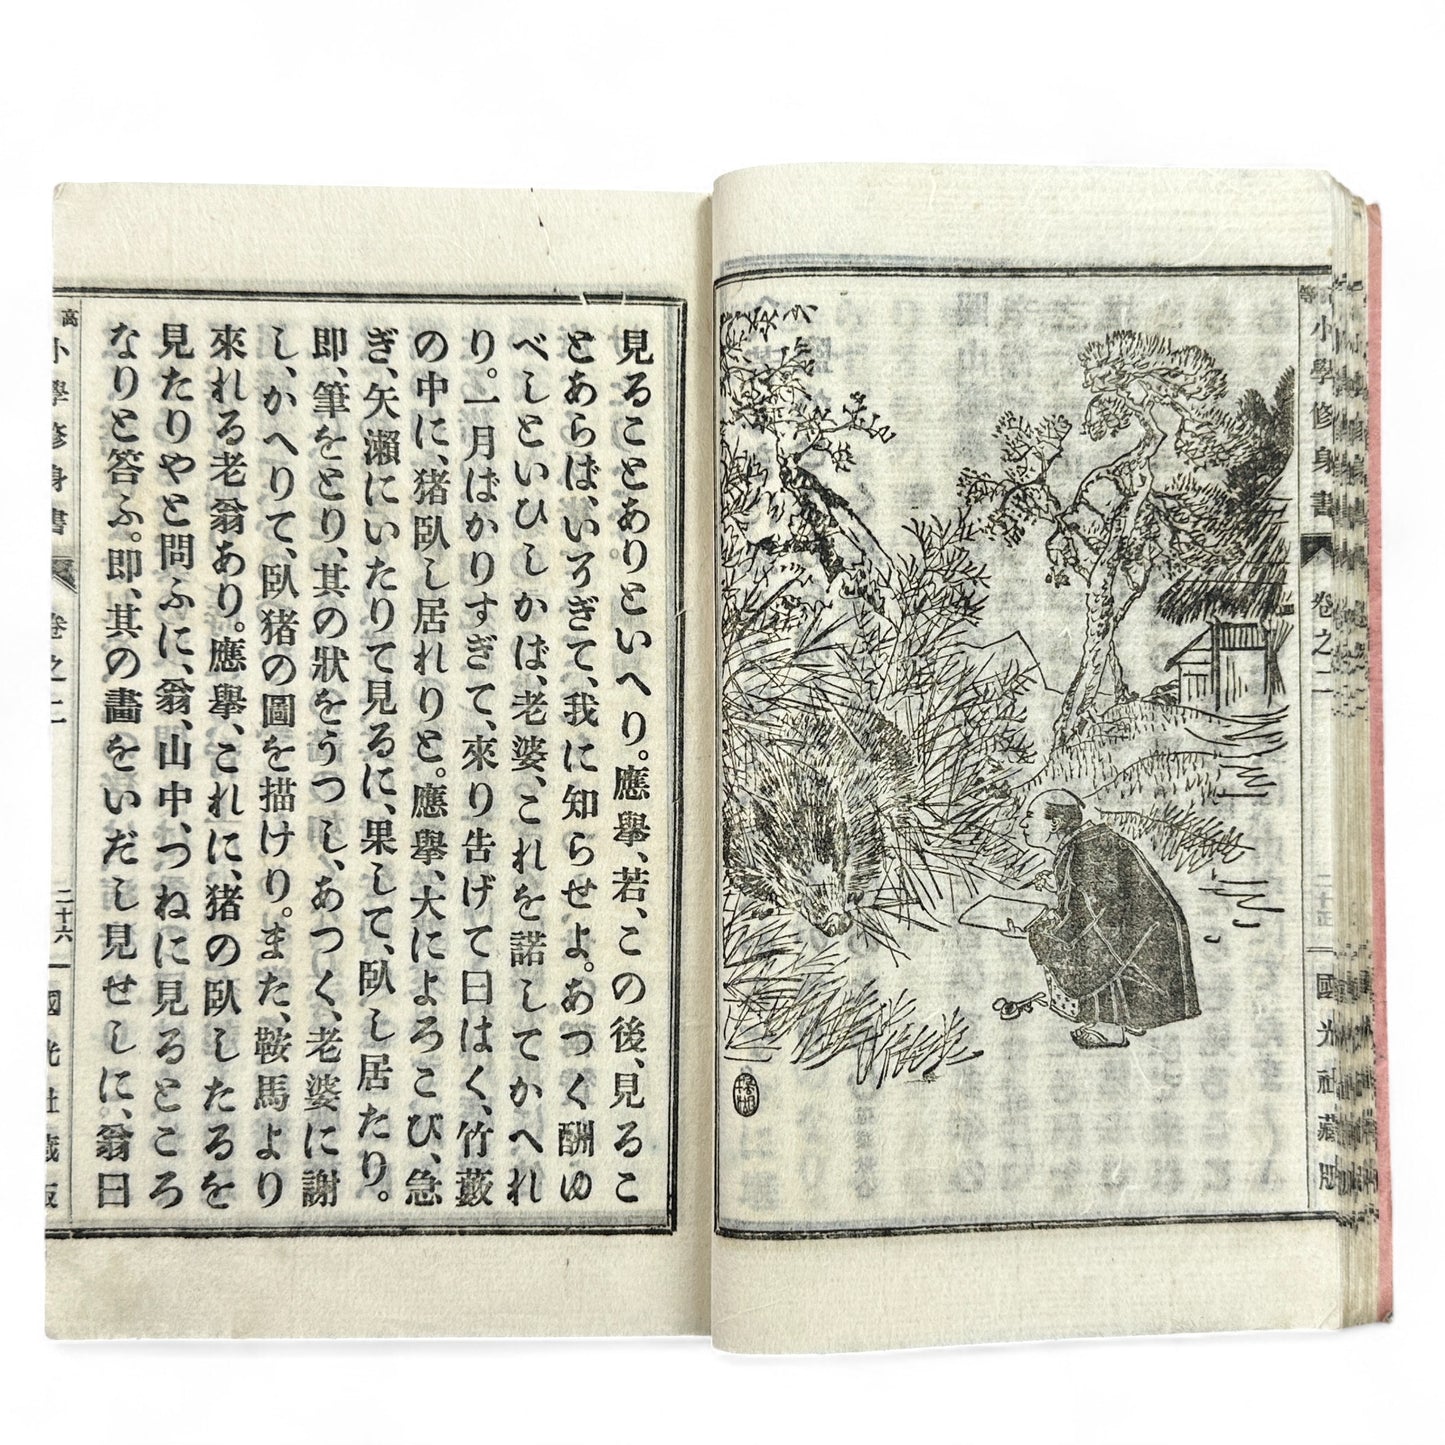 等小學修身書 卷之二 二十五 國光社藏版
見ることありといへり。應擧、若、この後、見るこ
とあらば、いそぎて、我に知らせよ。あつく酬ゆ
べしといひしかば、老婆、これを諾してかへれ
り。一月ばかりすぎて、來り告げて曰はく、竹藪
の中に、猪臥し居れりと。應擧、大によろこび、急
ぎ、矢瀨にいたりて見るに、果して、臥し居たり。
即、筆をとり、其の狀をうつし、あつく、老婆に謝
し、かへりて、臥猪の圖を描けり。また、鞍馬より
來れる老翁あり。應擧、これに、猪の臥したるを
見たりやと問ふに、翁、山中、つねに見るところ
なりと答ふ。即、其の畵をいだし見せしに、翁曰
高小學修身書 卷之二 二十六 國光社藏版